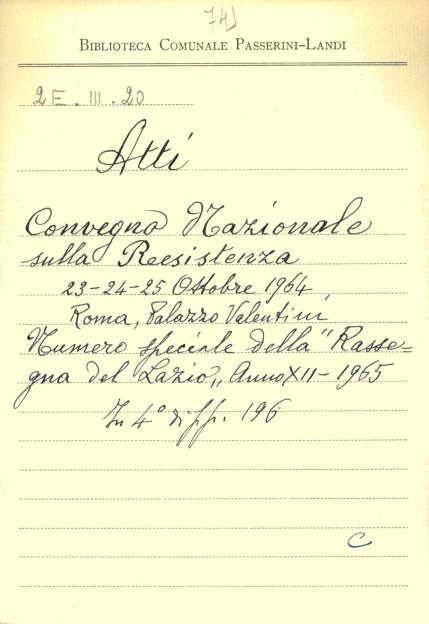 741
BIBLIOTECA COMUNALE PASSERINI-LANDI
2E.III.20
Atti
Convegno Nazionale
sulla Resistenza
23-24-25 Ottobre 1964,
Roma, Palazzo Valentini,
Numero speciale della "Rasse=
gna del Lazio„ Anno XII-1965
In 4° di pp. 196
C